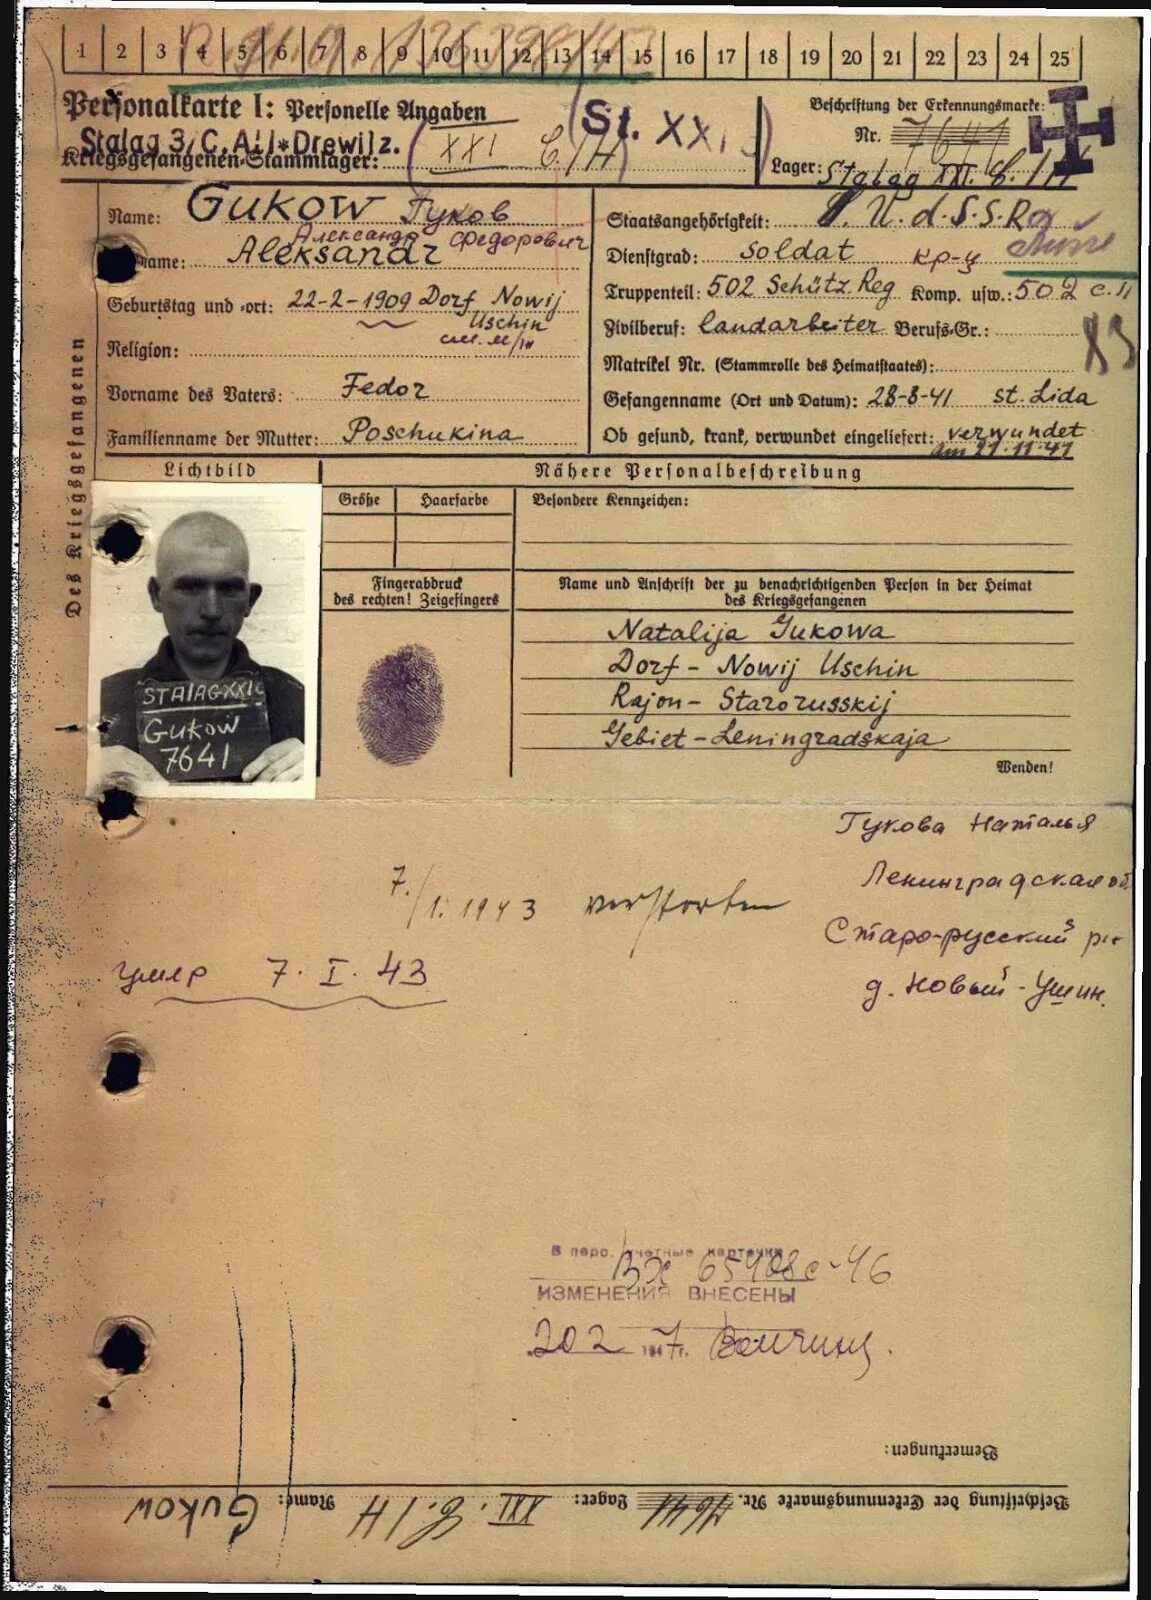 1 2 3 4 5 6 7 8 9 10 11 12 13 14 15 16 17 18 19 20 21 22 23 24 25
Personalkarte I: Personelle Angaben
Stalag 3/C. Alt=Drewitz.
Kriegsgefangenen-Stammlager: XXI C/H
St. XXI
Beschriftung der Erkennungsmarke:
Nr. 7641
Lager: Stalag XXI. C/H
Des Kriegsgefangenen
Name: GUKOW Гуков
Александр Федорович
name: Aleksandr
Geburtstag und -ort: 22-2-1909 Dorf Nowij
Uschin
Religion:
Vorname des Vaters: Fedor
Familienname der Mutter: Poschukina
Staatsangehörigkeit: U.d.S.S.R.
Dienstgrad: Soldat кр-ц
Truppenteil: 502 Schütz. Reg Komp. usw.: 502 с.п
Zivilberuf: landarbeiter Berufs-Gr.:
Matrikel Nr. (Stammrolle des Heimatstaates):
Gefangenname (Ort und Datum): 28-8-41 st. Lida
Ob gesund, krank, verwundet eingeliefert: verwundet
am 21.11.41
83
Lichtbild
Nähere Personalbeschreibung
Größe Haarfarbe
Besondere Kennzeichen:
Fingerabdruck
des rechten! Zeigefingers
Name und Anschrift der zu benachrichtigenden Person in der Heimat
des Kriegsgefangenen
Natalija Gukowa
Dorf - Nowij Uschin
Rajon - Starorusskij
Gebiet - Leningradskaja
Wenden!
STALAG XXI C
GUKOW
7641
Гукова Наталья
Ленинградская об.
Старо-русский р-н
д. Новый-Ушин.
7./1. 1943 verstorben
умер 7. I. 43
В перс. учетные карточки
ВХ 65908с-46
ИЗМЕНЕНИЯ ВНЕСЕНЫ
202 1947г.
Bemerkungen:
Beschriftung der Erkennungsmarke Nr. 7641 Lager: XXI. C/H Name: Gukow